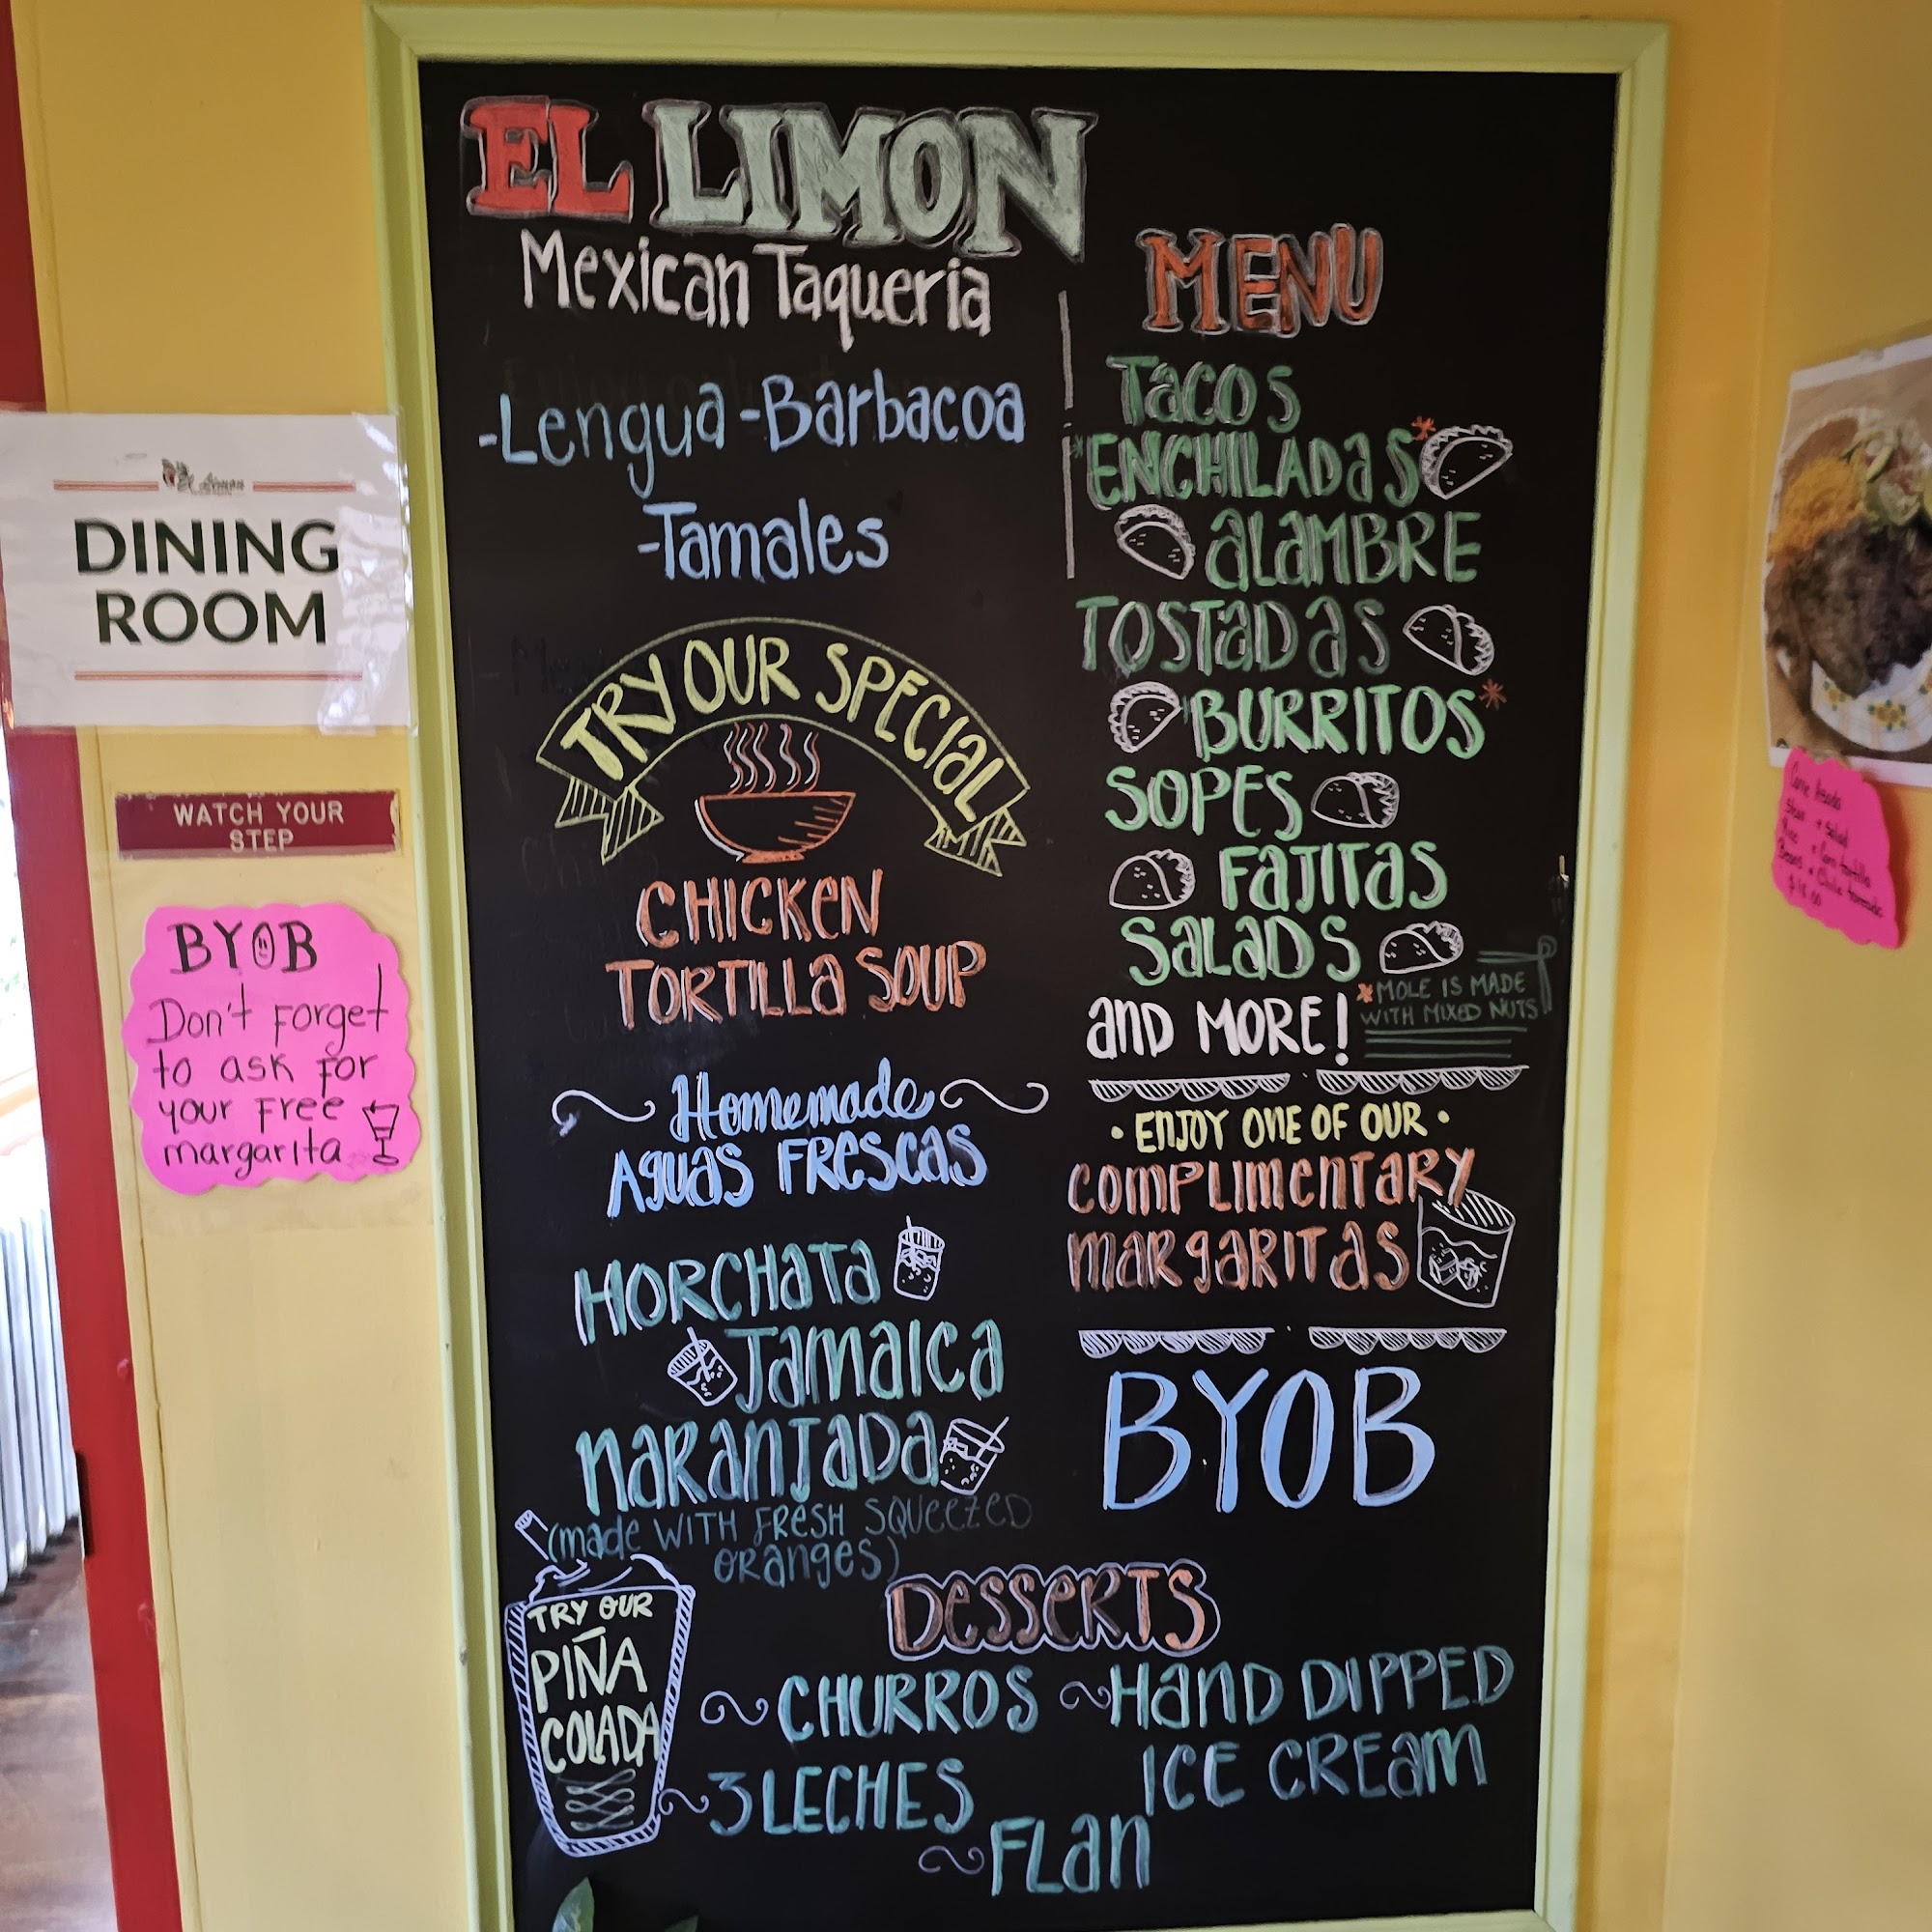 EL LIMON
Mexican Taqueria
-Lengua -Barbacoa
-Tamales
TRY OUR SPECIAL
CHICKEN
TORTILLA SOUP
Homemade
AGUAS FRESCAS
HORCHATA
JAMAICA
NARANJADA
(made WITH FRESH SQUEEZED
ORANGES)
TRY OUR
PIÑA
COLADA
MENU
TACOS
*ENCHILADAS*
ALAMBRE
TOSTADAS
BURRITOS*
SOPES
FAJITAS
SALADS
AND MORE!
*MOLE IS MADE
WITH MIXED NUTS
• ENJOY ONE OF OUR •
COMPLIMENTARY
MARGARITAS
BYOB
DESSERTS
~CHURROS ~HAND DIPPED
ICE CREAM
~3 LECHES
~FLAN
El Limon
DINING
ROOM
WATCH YOUR
STEP
BYOB
Don't Forget
to ask For
your Free
margarita
Carne Asada
Steak + Salad
Rice + Corn tortilla
Beans + Chile